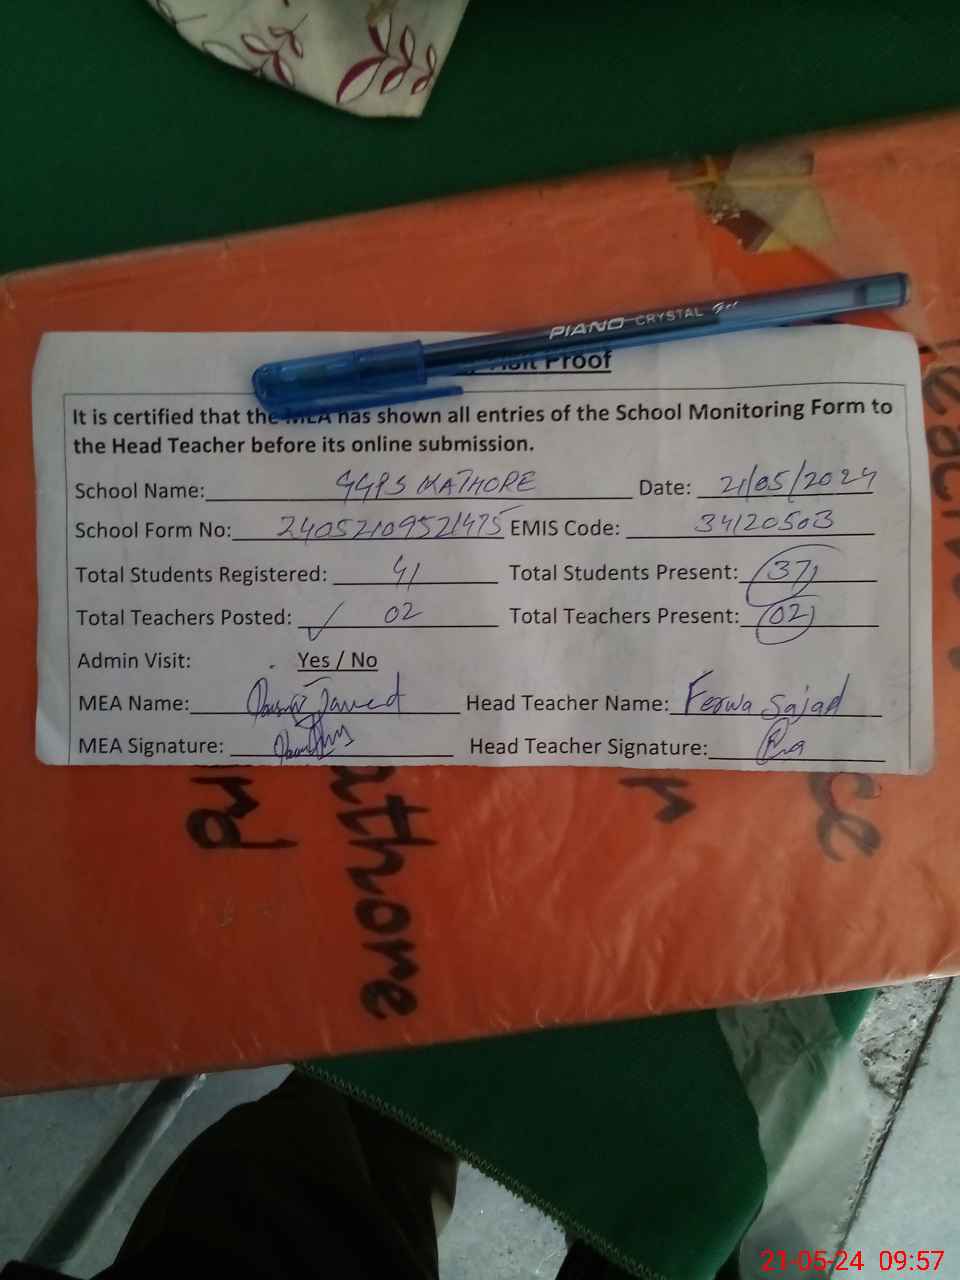 PIANO CRYSTAL Gel
Visit Proof
It is certified that the MEA has shown all entries of the School Monitoring Form to
the Head Teacher before its online submission.
School Name: GGPS KATHORE Date: 21/05/2024
School Form No: 24052109521475 EMIS Code: 34120503
Total Students Registered: 41 Total Students Present: 37
Total Teachers Posted: 02 Total Teachers Present: 02
Admin Visit: Yes / No
MEA Name: Javed Head Teacher Name: Ferwa Sajad
MEA Signature: Head Teacher Signature:
athore
21-05-24 09:57